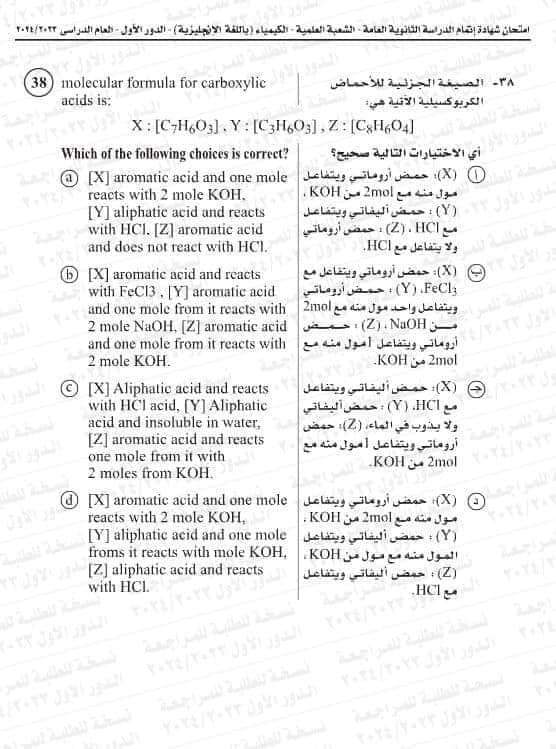 امتحان شهادة إتمام الدراسة الثانوية العامة - الشعبة العلمية - الكيمياء (باللغة الإنجليزية) - الدور الأول - العام الدراسى ٢٠٢٤/٢٠٢٣
38 molecular formula for carboxylic
acids is:
٣٨- الصيغة الجزئية للأحماض
الكربوكسيلية الآتية هي:
X : [C₇H₆O₃] , Y : [C₃H₆O₃] , Z : [C₈H₆O₄]
Which of the following choices is correct?
أي الاختيارات التالية صحيح؟
a [X] aromatic acid and one mole
reacts with 2 mole KOH,
[Y] aliphatic acid and reacts
with HCl, [Z] aromatic acid
and does not react with HCl.
أ (X): حمض أروماتي ويتفاعل
مول منه مع 2mol من KOH ،
(Y): حمض أليفاتي ويتفاعل
مع HCl ، (Z): حمض أروماتي
ولا يتفاعل مع HCl.
b [X] aromatic acid and reacts
with FeCl3 , [Y] aromatic acid
and one mole from it reacts with
2 mole NaOH, [Z] aromatic acid
and one mole from it reacts with
2 mole KOH.
ب (X): حمض أروماتي ويتفاعل مع
FeCl₃، (Y): حمض أروماتي
ويتفاعل واحد مول منه مع 2mol
من NaOH ، (Z): حمض
أروماتي ويتفاعل ١مول منه مع
2mol من KOH.
c [X] Aliphatic acid and reacts
with HCl acid, [Y] Aliphatic
acid and insoluble in water,
[Z] aromatic acid and reacts
one mole from it with
2 moles from KOH.
ج (X): حمض أليفاتي ويتفاعل
مع HCl، (Y): حمض أليفاتي
ولا يذوب في الماء، (Z): حمض
أروماتي ويتفاعل ١مول منه مع
2mol من KOH.
d [X] aromatic acid and one mole
reacts with 2 mole KOH,
[Y] aliphatic acid and one mole
froms it reacts with mole KOH,
[Z] aliphatic acid and reacts
with HCl.
د (X): حمض أروماتي ويتفاعل
مول منه مع 2mol من KOH ،
(Y): حمض أليفاتي ويتفاعل
المول منه مع مول من KOH ،
(Z): حمض أليفاتي ويتفاعل
مع HCl.
نسخة للطلبة للمراجعة
الدور الأول ٢٠٢٤/٢٠٢٣